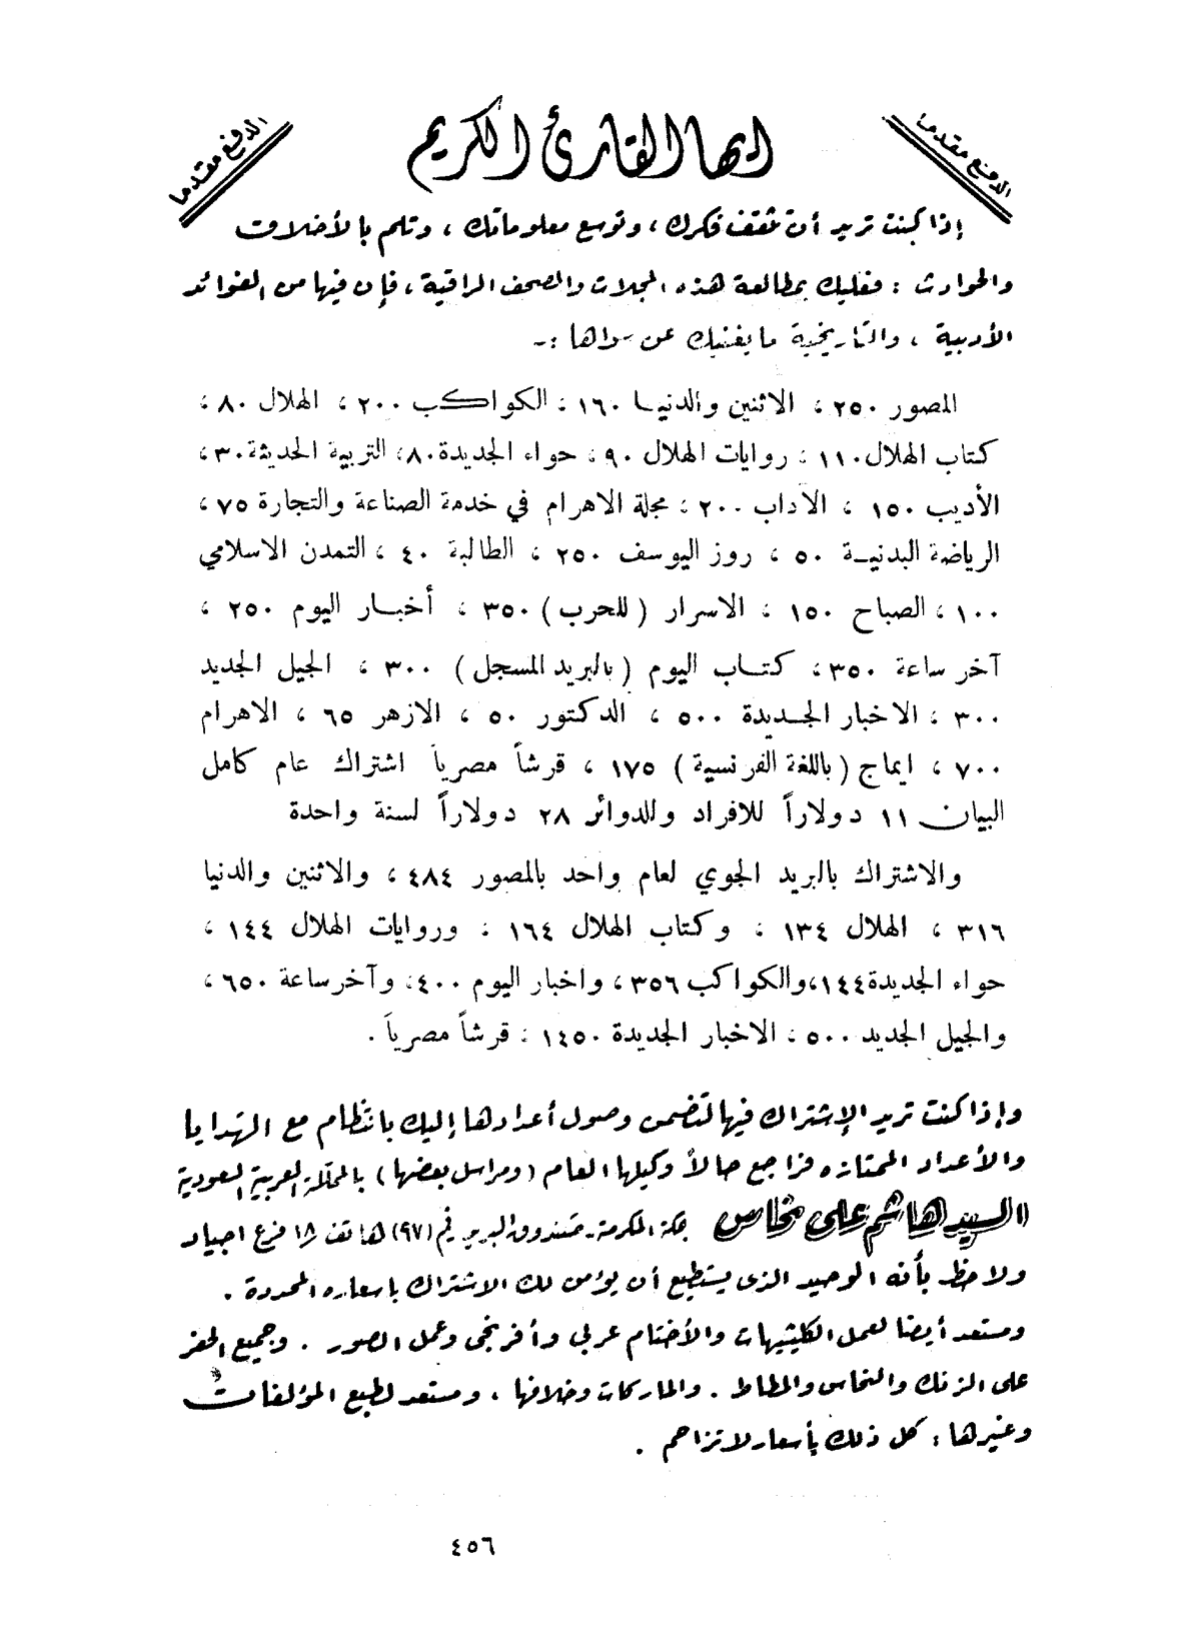 الدفع مقدما
ايها القارئ الكريم
الدفع مقدما
إذا كنت تريد أن تثقف فكرك، وتوسع معلوماتك، وتلم بالأخلاق
والحوادث : فعليك بمطالعة هذه المجلات والصحف الراقية، فإن فيها من الفوائد
الأدبية ، والتاريخية ما يغنيك عن سواها :-
المصور ٢٥٠ ، الاثنين والدنيا ١٦٠ ، الكواكب ٢٠٠ ، الهلال ٨٠ ،
كتاب الهلال ١١٠ ، روايات الهلال ٩٠ ، حواء الجديدة ٨٠ ، التربية الحديثة ٣٠ ،
الأديب ١٥٠ ، الآداب ٢٠٠ ، مجلة الاهرام في خدمة الصناعة والتجارة ٧٥ ،
الرياضة البدنية ٥٠ ، روز اليوسف ٢٥٠ ، الطالبة ٤٠ ، التمدن الاسلامي
١٠٠ ، الصباح ١٥٠ ، الاسرار ( للحرب ) ٣٥٠ ، أخبار اليوم ٢٥٠ ،
آخر ساعة ٣٥٠ ، كتاب اليوم ( بالبريد المسجل ) ٣٠٠ ، الجيل الجديد
٣٠٠ ، الاخبار الجديدة ٥٠٠ ، الدكتور ٥٠ ، الازهر ٦٥ ، الاهرام
٧٠٠ ، ايماج ( باللغة الفرنسية ) ١٧٥ ، قرشاً مصرياً اشتراك عام كامل
البيان ١١ دولاراً للافراد وللدوائر ٢٨ دولاراً لسنة واحدة
والاشتراك بالبريد الجوي لعام واحد بالمصور ٤٨٤ ، والاثنين والدنيا
٣١٦ ، الهلال ١٣٤ ، وكتاب الهلال ١٦٤ ، وروايات الهلال ١٤٤ ،
حواء الجديدة ١٤٤ ، والكواكب ٣٥٦ ، واخبار اليوم ٤٠٠ ، وآخر ساعة ٦٥٠ ،
والجيل الجديد ٥٠٠ ، الاخبار الجديدة ١٤٥٠ ، قرشاً مصرياً .
وإذا كنت تريد الإشتراك فيها لتضمن وصول أعدادها إليك بانتظام مع الهدايا
والأعداد الممتازه فراجع حالاً وكيلها العام (ومراسل بعضها) بالمملكة العربية السعودية
السيد هاشم علي نحاس بمكة المكرمة - صندوق البريد رقم (٩٧) هاتف ١٨ فرع اجياد
ولاحظ بأنه الوحيد الذى يستطيع أن يؤمن لك الاشتراك باسعاره المحددة .
ومستعد أيضا لعمل الكليشيهات والأختام عربى وأفرنجى وعمل الصور . وجميع الحفر
على الزنك والنحاس والمطاط . والماركات وخلافها ، ومستعد لطبع المؤلفات
وغيرها ، كل ذلك بأسعار لا تزاحم .
٤٥٦